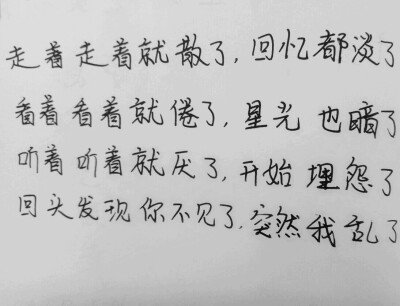 走着走着就散了,回忆都淡了
看着看着就倦了,星光也暗了
听着听着就厌了,开始埋怨了
回头发现你不见了,突然我乱了